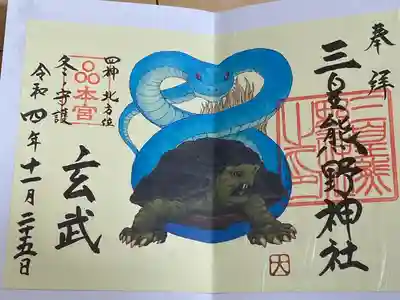 奉拝
三皇熊野神社
四神 北方位
冬ノ守護
本宮
玄武
令和四年十一月二十五日